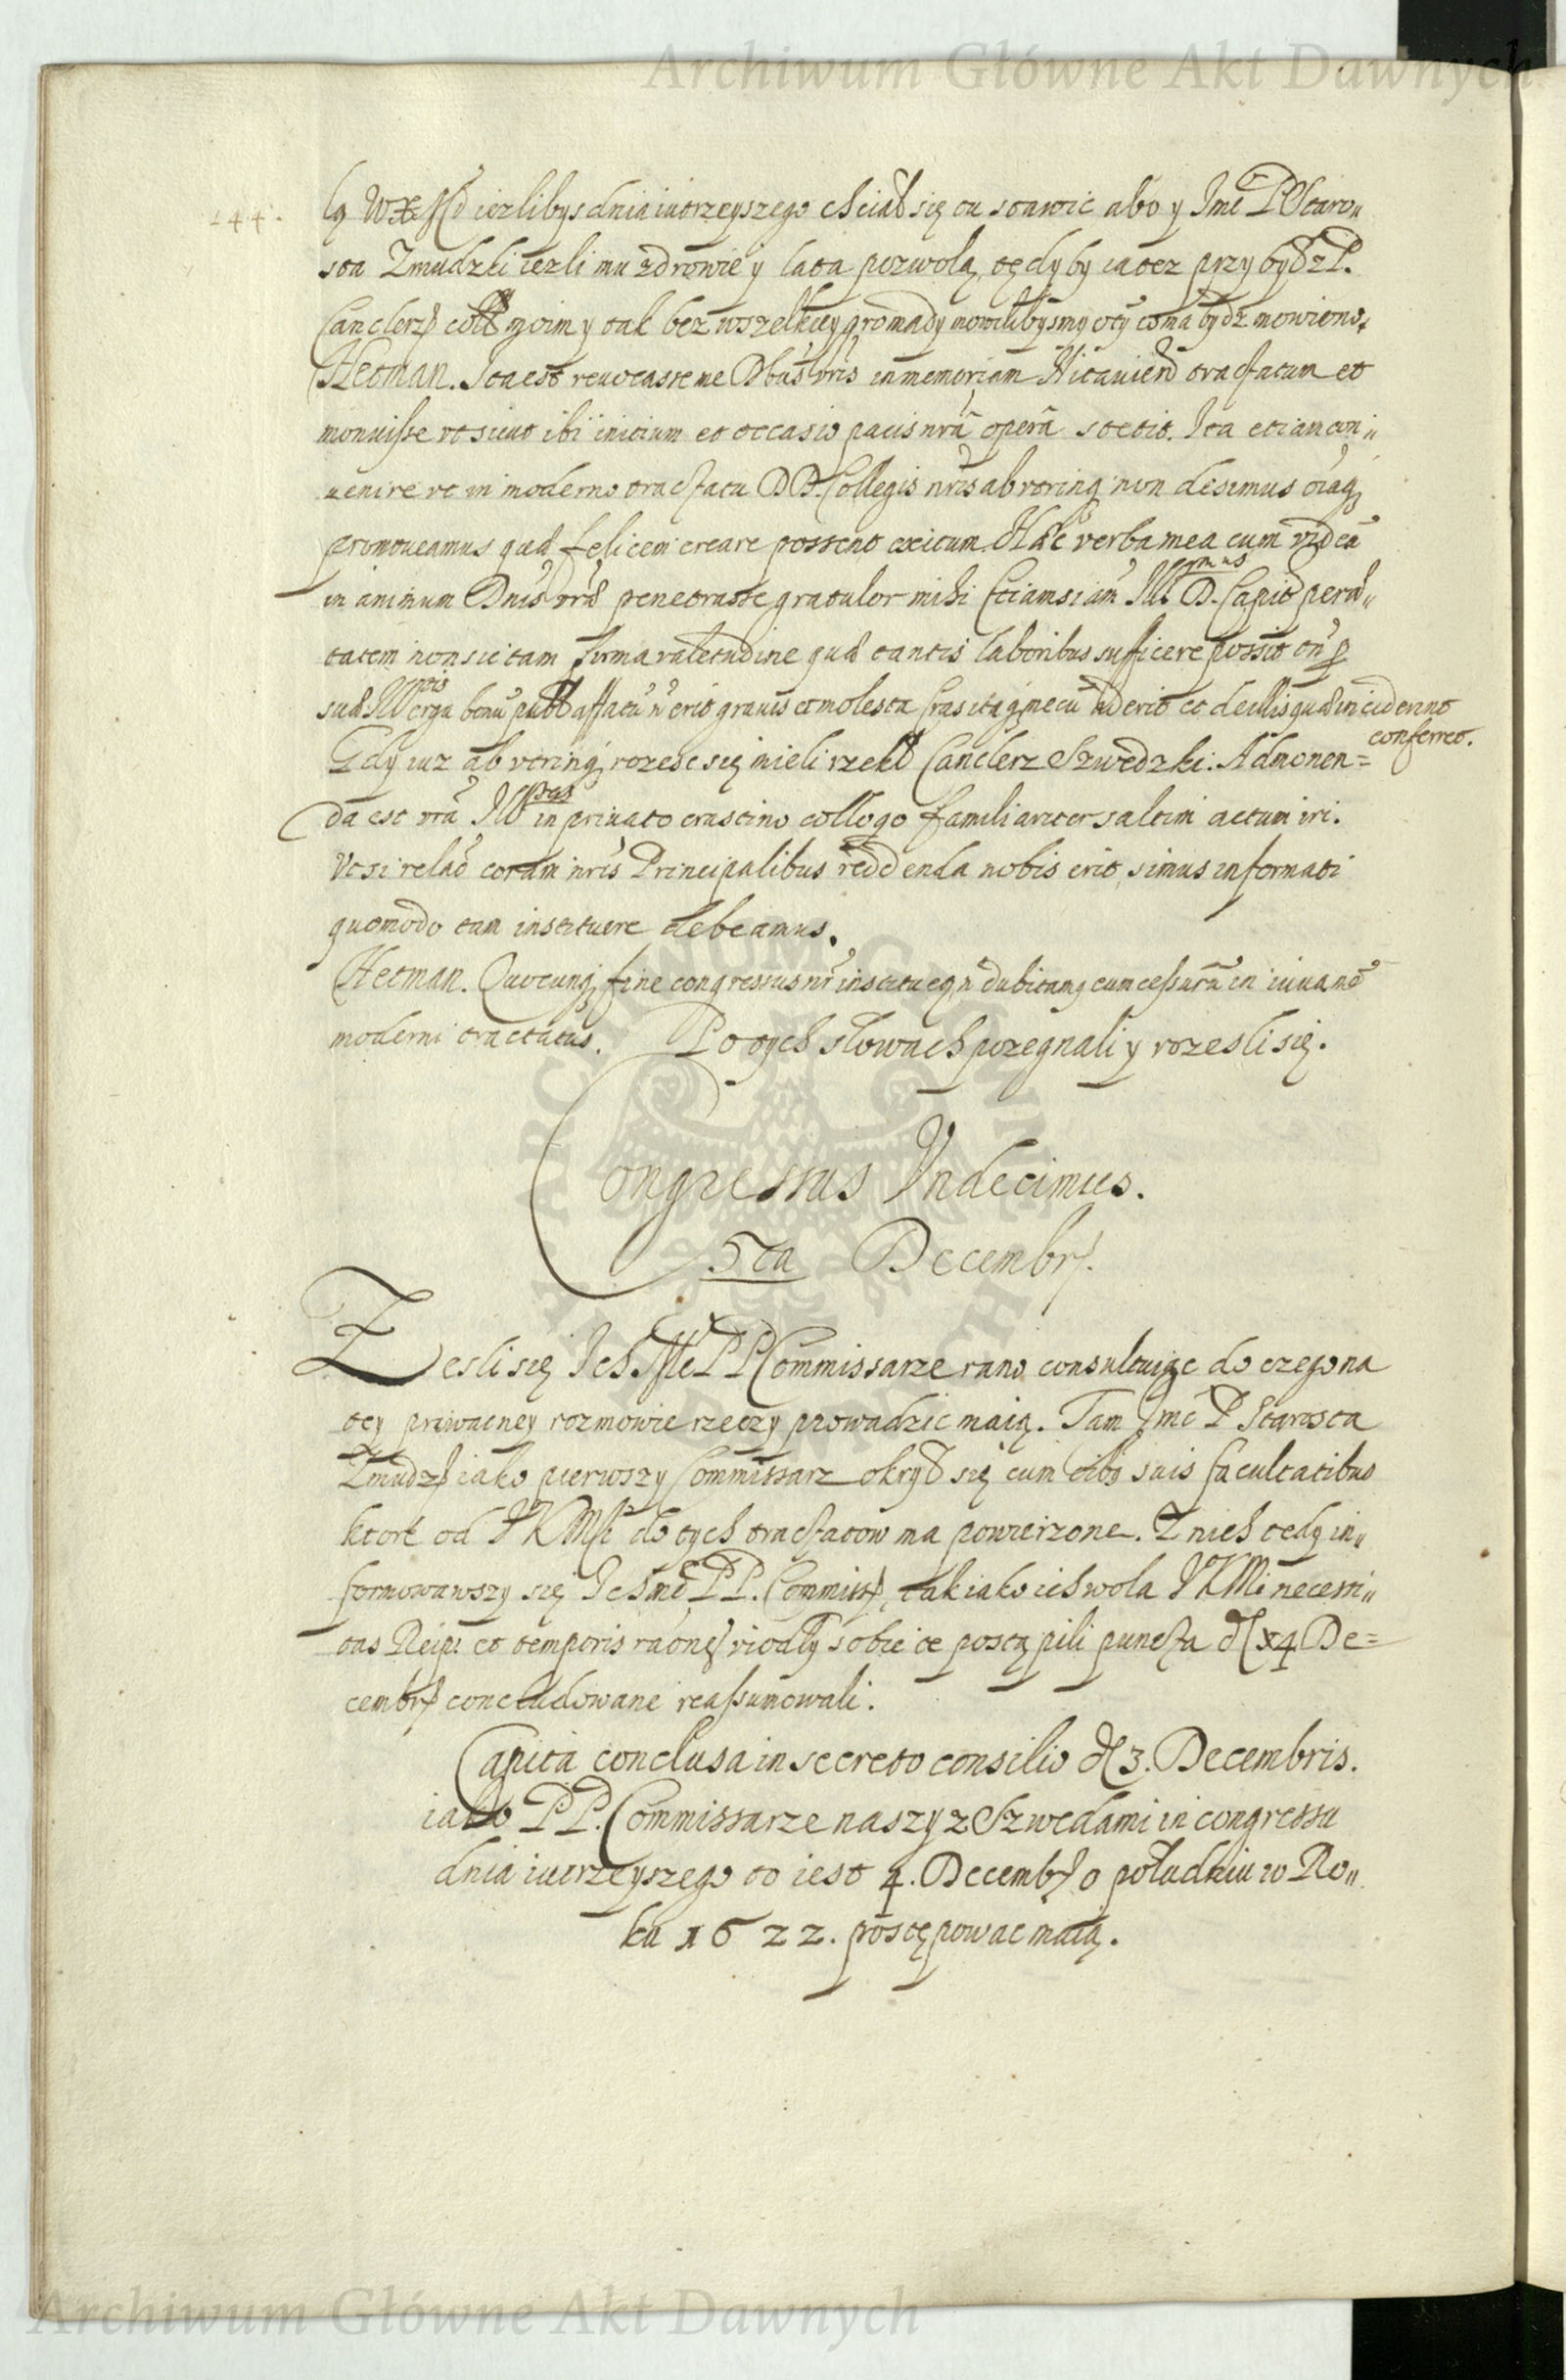 Archiwum Główne Akt Dawnych
144
WXMć iezlibys dnia iutrzeyszego chciał się tu stawic abo y Jmć P Staro„
sta Zmudzki iezli mu zdrowie y lata pozwolą, tędy by ia tez przybył z P.
Canclerz coll moim y tak bez wszelkiey gromady mowilibysmy o tÿ co ma bydz mowiono.
Hetman. Ita est reuocasse me Dbus vris in memoriam Mitauien tractatum et
monuisse vt sicut ibi initium et occasio pacis nrã operã stetit. Ita etiam con„
uenire vt in moderno tractatu DD. Collegis nris ab vtrinq non desimus oiaq
promoueamus quæ felicem creare possent exitum. Hæc verba mea cum videã
in animum Dnis vræ penetrasse gratulor mihi Etiamsi am Illmus D. Capit
tatem non sit tam firma valetudine quæ tantis laboribus sufficere possit tñ p
suæ Ill erga bonũ publ affectu ñ erit grauis et molesta Cras itaq mecũ aderit et de illis quæ incident
conferret.
Gdy iuz ab vtrinq rozesc się mieli rzekł Canclerz Szwedzki: Admonen=
da est vrã Ill in priuato crastino colloqo familiariter saltim actum iri.
Vt si relaõ coram nris Principalibus reddenda nobis erit, simus informati
quomodo eam instituere debeamus.
Hetman. Quocunq fine congressus nr̃ instituetq ñ dubitamq eum cessurũ in iuuamẽ
moderni tractatus. Po tych słowach pozegnali y rozesli się.
Congressus Vndecimus.
5ta Decembr.
Zesli się Ich Mć PP Commissarze rano consultuiąc do czego na
tey priwatney rozmowie rzeczy prowadzic maią. Tam Jmć P Starosta
Zmudz iako pierwszy Commissarz okrył się cum oibs suis facultatibus
ktore od JKMści do tych tractatow ma powierzone. Z nich tedy in„
formowawszy się Ichmć PP. Commiss, tak iako ich wola JKMći necessi„
tas Reip. et temporis raõnes wiodły sobie te postąpili puncta d 4 De=
cembr concludowane reassumowali.
Capita conclusa in secreto consilio d 3. Decembris.
iako PP. Commissarze naszy z Szwedami in congressu
dnia iutrzeyszego to iest 4. Decembr o południu w Ro„
ku 1622. postępowac maią.
Archiwum Główne Akt Dawnych